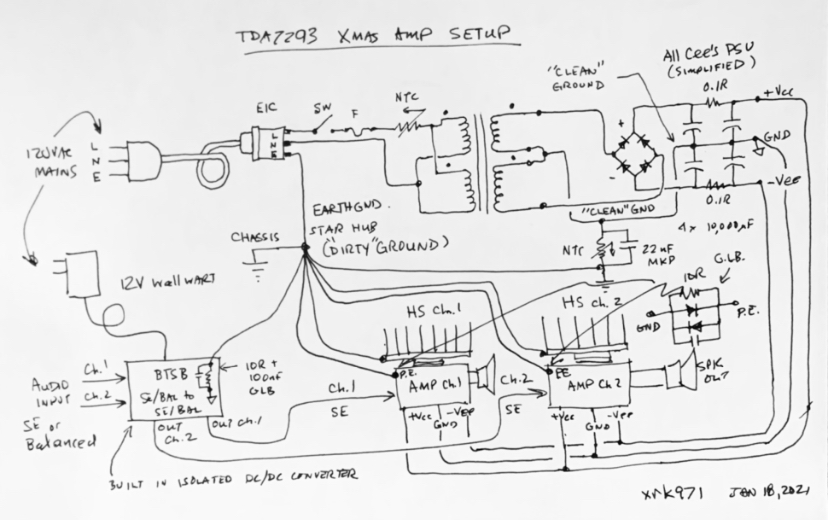 TDA7293 XMAS AMP SETUP
All Cee's PSU
(SIMPLIFIED)
"CLEAN"
GROUND
0.1R
+Vcc
EIC
SW
F
NTC
L
N
E
120VAC
MAINS
L
N
E
+
-
GND
-Vee
0.1R
EARTH GND
STAR HUB
("DIRTY" GROUND)
CHASSIS
"CLEAN" GND
4 x 10,000uF
NTC
22nF
MKP
G.L.B.
10R
GND
P.E.
12V Wallwart
HS Ch.1
HS Ch.2
Ch.1
Ch.2
AUDIO
INPUT
SE or
Balanced
BTSB
SE/BAL to
SE/BAL
10R +
100nF
GLB
OUT
Ch.2
OUT Ch.1
Ch.1
SE
P.E.
AMP Ch.1
+Vcc
GND
-VEE
Ch.2
SE
P.E.
AMP Ch2
+Vcc
GND
-Vee
SPK
OUT
BUILT IN ISOLATED DC/DC CONVERTER
xrk971 JAN 18, 2021